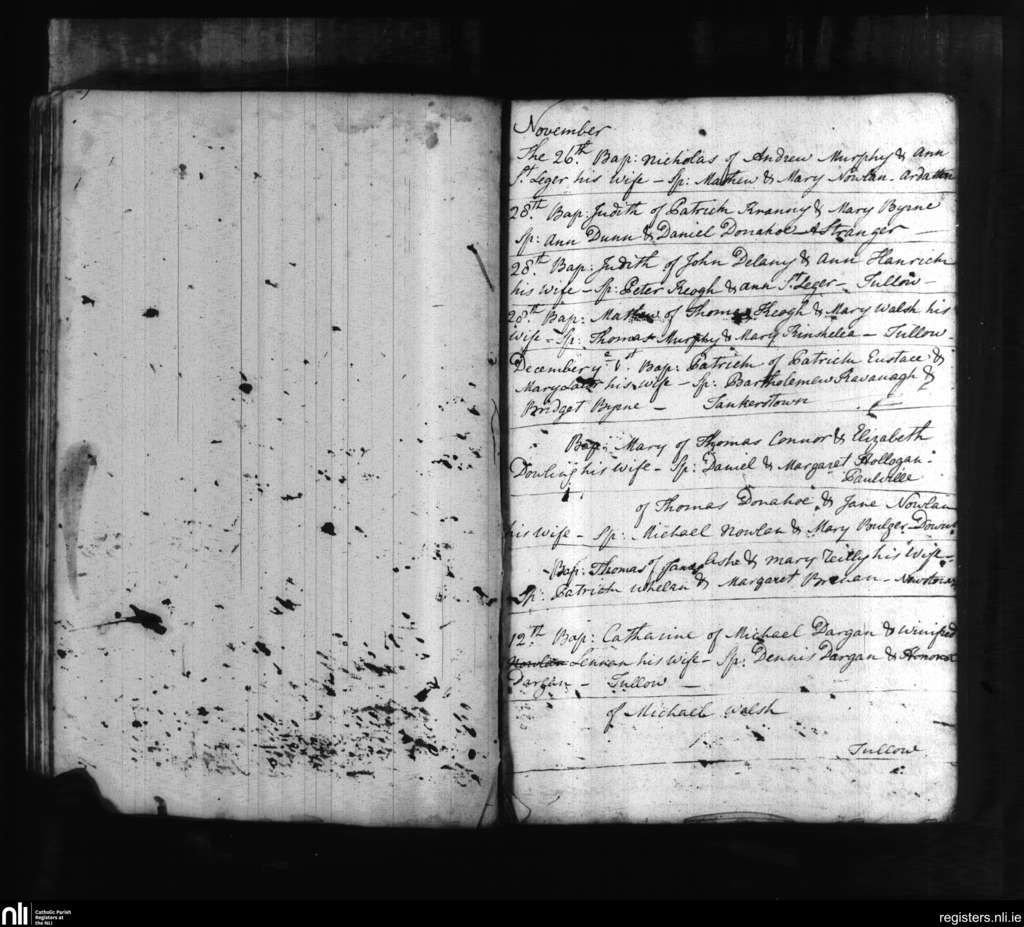 November
The 26th. Bap: Nicholas of Andrew Murphy & Ann
St. Leger his wife – Sp: Mathew & Mary Nowlan.
28th. Bap: Judith of Patrick & Mary Byrne
Sp: Ann Dunn & Daniel Donahoe A Stranger –
28th. Bap: Judith of John Delany & Ann Hanrick
his wife – Sp: Peter Keogh & Ann St. Leger – Tullow –
28th. Bap: Mathew of Thomas Keogh & Mary Walsh his
wife – Sp: Thomas Murphy & Mary Kinshelea – Tullow
December ye 1st Bap: Patrick of Patrick Eustace &
Mary his wife – Sp: Bartholemew Kavanagh &
Bridget Byrne – Tankerstown
Bap: Mary of Thomas Connor & Elizabeth
Dowling his wife – Sp: Daniel & Margaret Hollogan –
Paulville
of Thomas Donahoe & Jane Nowlan
his wife – Sp: Michael Nowlan & Mary Boulger
Bap: Thomas of Ashe & Mary his wife –
Sp: Patrick Whelan & Margaret Brenan –
12th. Bap: Catharine of Michael Dargan & Winifred
Nowlan Lennan his wife – Sp: Dennis Dargan & Honora
Dargan – Tullow –
of Michael Walsh
Tullow
nli
Catholic Parish
Registers at
the NLI
registers.nli.ie